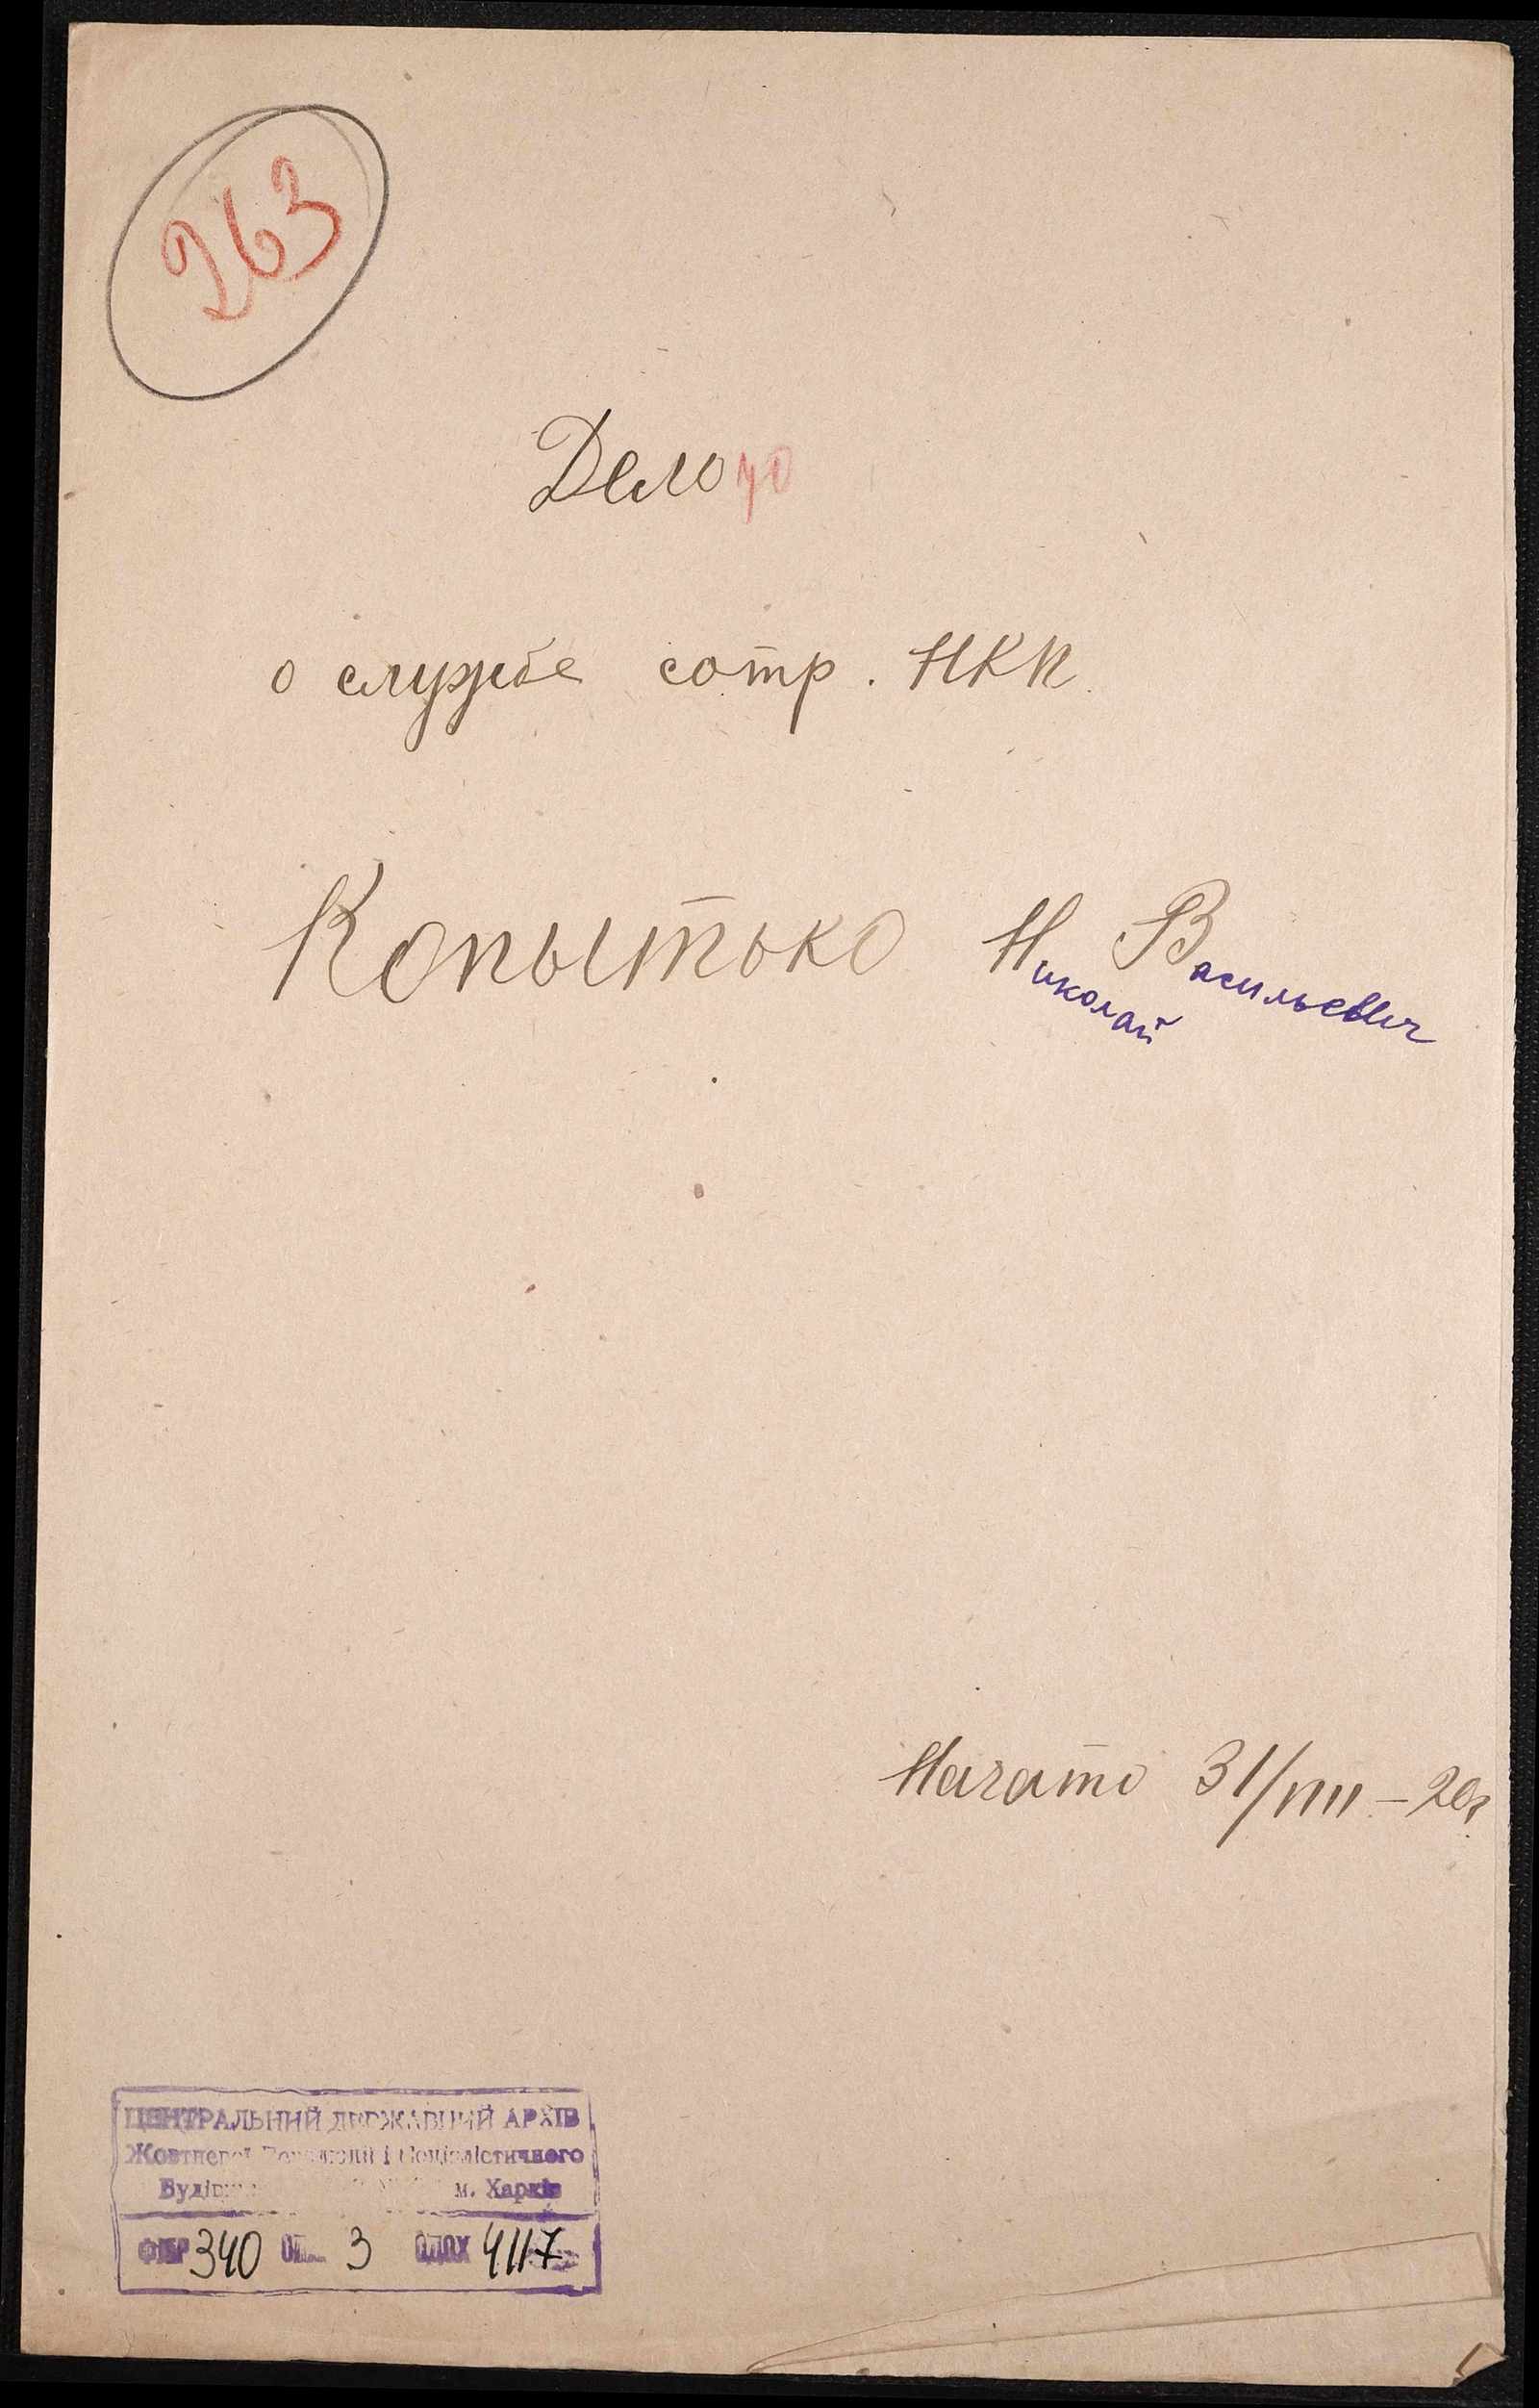 263
Дело 40
о службе сотр. НКП.
Копытько Николай Васильевич
Начато 31/VIII – 20г.
ЦЕНТРАЛЬНИЙ ДЕРЖАВНИЙ АРХІВ
Жовтневої Революції і Соціалістичного
м. Харків
ФНР 340 ОП. 3 ОДЗХ 4117